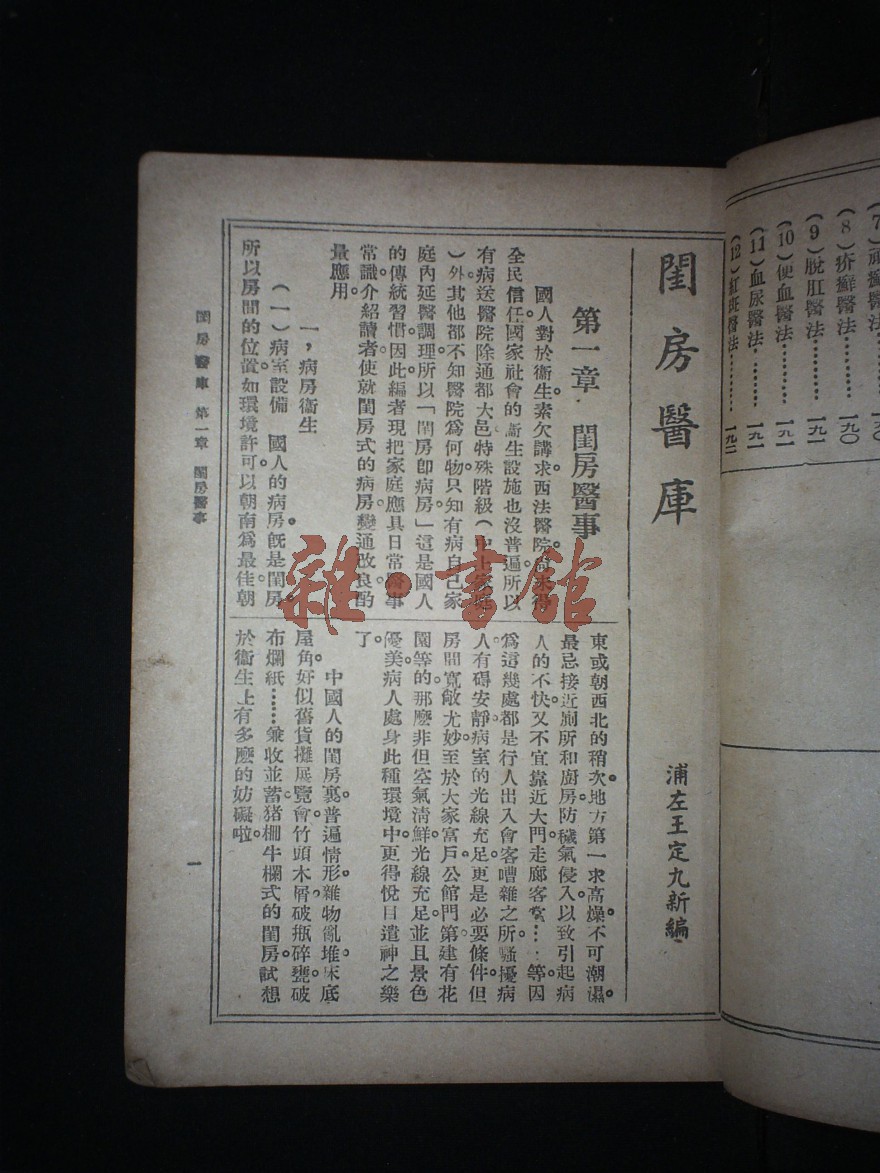 (7)頑癬醫法
(8)疥癬醫法………一九〇
(9)脫肛醫法………一九一
(10)便血醫法………一九一
(11)血尿醫法………一九一
(12)紅斑醫法………一九二
閨房醫庫
浦左王定九新編
第一章 閨房醫事
國人對於衞生。素欠講求。西法醫院。尚未得
全民信任。國家社會的衞生設施也沒普遍。所以
有病送醫院除通都大邑特殊階級(中上家庭
)外。其他都不知醫院爲何物。只知有病自己家
庭內延醫調理。所以「閨房卽病房」這是國人
的傳統習慣。因此。編者現把家庭應具日常醫事
常識。介紹讀者。使就閨房式的病房。變通改良酌
量應用。
一，病房衞生
(一)病室設備 國人的病房。旣是閨房。
所以房間的位置。如環境許可。以朝南爲最佳。朝
東或朝西北的稍次。地方第一求高燥。不可潮濕。
最忌接近廁所和廚房。防穢氣侵入。以致引起病
人的不快。又不宜靠近大門走廊客堂……等因
爲這幾處都是行人出入會客嘈雜之所。騷擾病
人有礙安靜。病室的光線充足。更是必要條件。但
房間寬敞尤妙。至於大家富戶。公館門第。建有花
園等的。那麽非但空氣淸鮮。光線充足。並且景色
優美。病人處身此種環境中。更得悅目遣神之樂
了。
中國人的閨房裏。普遍情形。雜物亂堆。床底
屋角。好似舊貨攤展覽會。竹頭木屑。破瓶碎甕。破
布爛紙……兼收並蓄。猪棚牛欄式的閨房。試想
於衞生上有多麽的妨礙啦。
閨房醫庫 第一章 閨房醫事
一
雜·書館